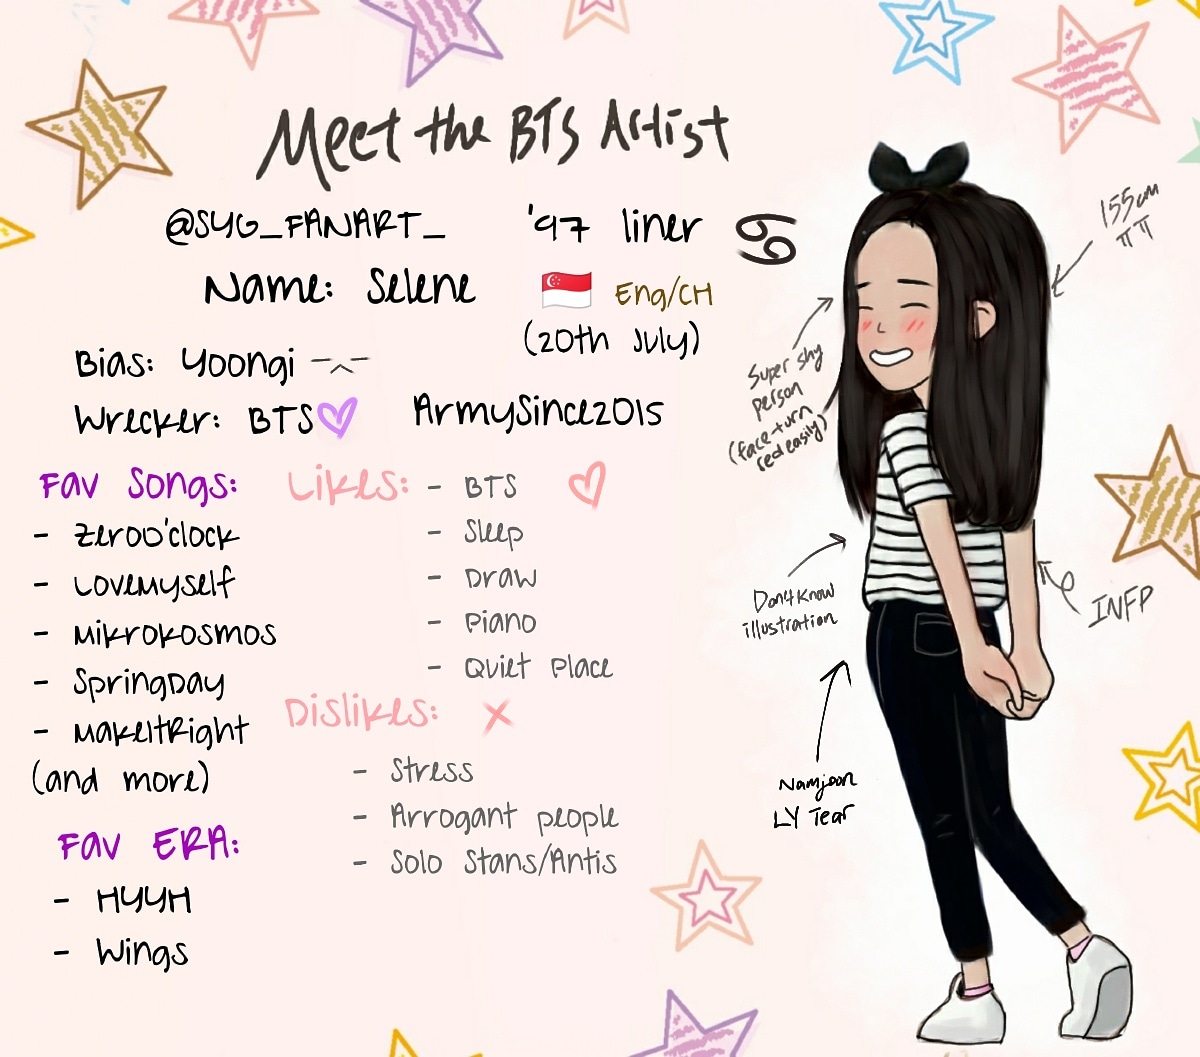 Meet the BTS Artist
@SYG_FANART_ '97 liner ♋
Name: Selene 🇸🇬 Eng/CH
(20th July)
Bias: Yoongi
Wrecker: BTS💜 ArmySince2015
Fav Songs:
- Zero0'clock
- LoveMyself
- Mikrokosmos
- SpringDay
- MakeItRight
(and more)
Fav ERA:
- HYYH
- Wings
Likes:
- BTS
- Sleep
- Draw
- Piano
- Quiet Place
Dislikes: x
- Stress
- Arrogant people
- Solo Stans/Antis
155cm
ㅠㅠ
Super shy
person
(face turn
red easily)
Don4Know
illustration
INFP
Namjoon
LY Tear